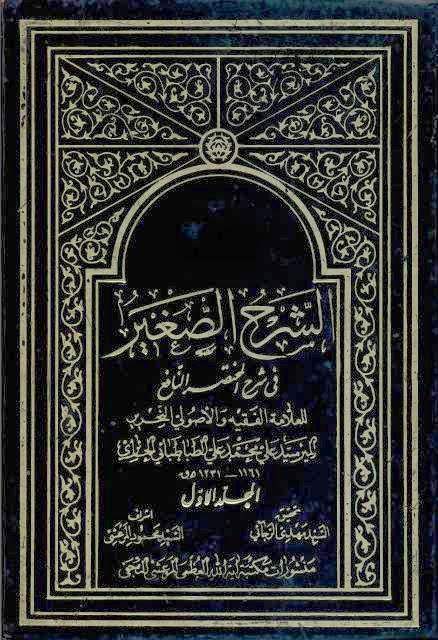 الشَّرحُ الصَّغيرُ
في شرح المختصر النافع
للعلامة الفقيه والأصولي النحرير
المير سيد علي محمد علي الطباطبائي الحائري
١١٦١ - ١٢٣١ ه‍ ق
المجلد الاول
تحقيق
السيد مهدي الرجائي
اشراف
السيد محمود المرعشي
منشورات مكتبة آية الله العظمى المرعشي النجفي